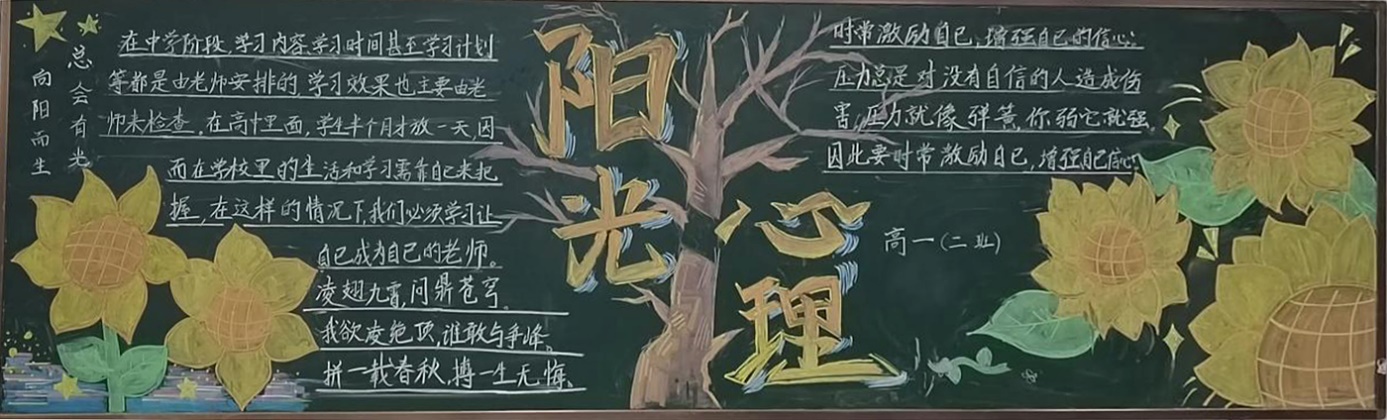 向阳而生
总会有光
在中学阶段,学习内容学习时间甚至学习计划
等都是由老师安排的,学习效果也主要由老
师来检查,在高中里面,学生半个月才放一天,因
而在学校里的生活和学习需靠自己来把
握,在这样的情况下,我们必须学习让
自己成为自己的老师。
凌翅九霄,问鼎苍穹。
我欲凌绝顶,谁敢与争峰。
拼一载春秋,搏一生无悔。
阳光
心理
时常激励自己,增强自己的信心:
压力总是对没有自信的人造成伤
害,压力就像弹簧,你弱它就强。
因此要时常激励自己,增强自己信心。
高一(二班)